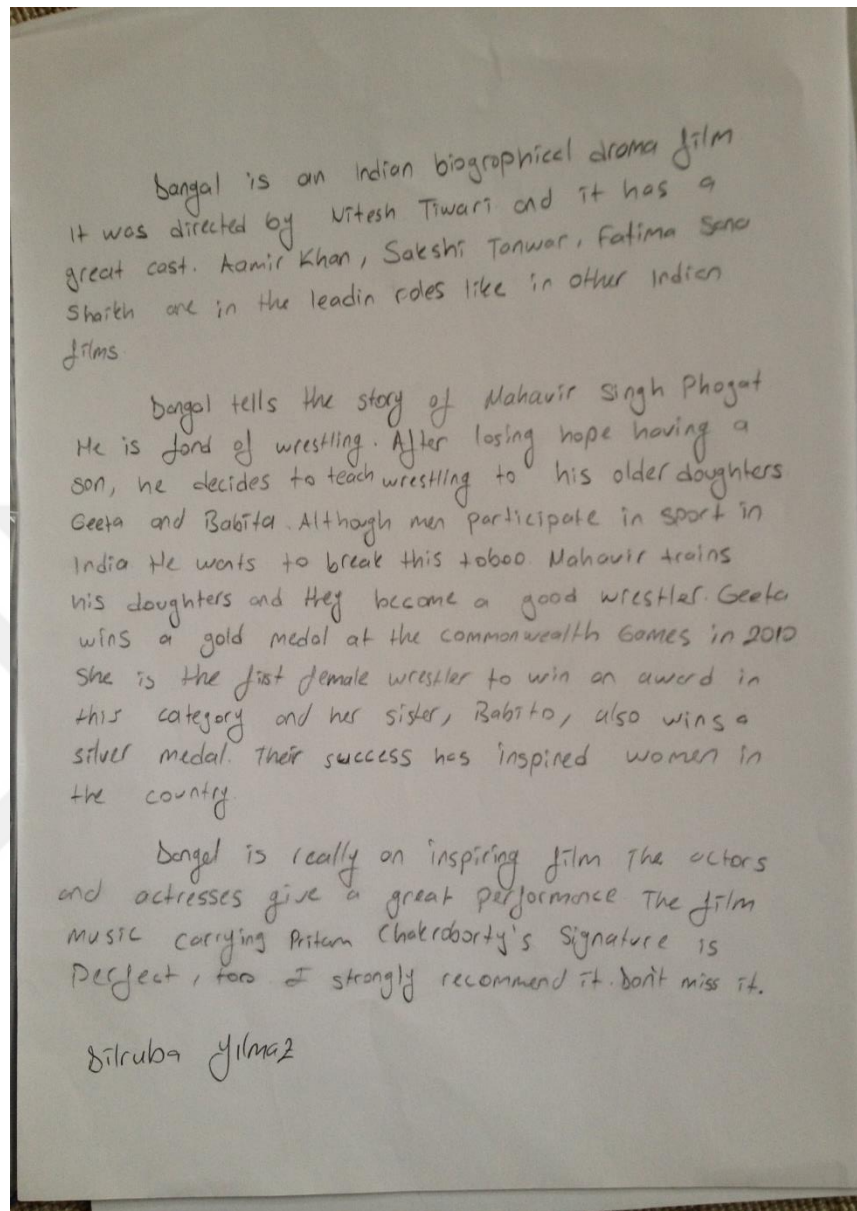 Dangal is an Indian biographical drama film
It was directed by Nitesh Tiwari and it has a
great cast. Aamir Khan, Sakshi Tanwar, Fatima Sana
Shaikh are in the leadin roles like in other Indian
films.
Dangal tells the story of Mahavir Singh Phogat
He is fond of wrestling. After losing hope having a
son, he decides to teach wrestling to his older doughters
Geeta and Babita. Although men participate in sport in
India He wants to break this taboo. Mahavir trains
his doughters and they become a good wrestler. Geeta
wins a gold medal at the commonwealth Games in 2010
She is the fist female wrestler to win an award in
this category and her sister, Babita, also wins a
silver medal. Their success has inspired women in
the country
Dangal is really an inspiring film The actors
and actresses give a great performance The film
music carrying Pritam Chakraborty's Signature is
Perfect, too I strongly recommend it. Don't miss it.
Dilruba Yılmaz